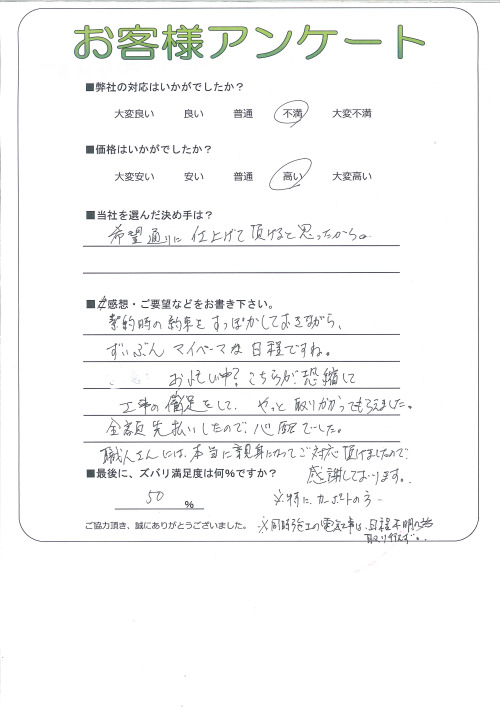 お客様アンケート
■弊社の対応はいかがでしたか？
大変良い 良い 普通 不満 大変不満
■価格はいかがでしたか？
大変安い 安い 普通 高い 大変高い
■当社を選んだ決め手は？
希望通りに仕上げて頂けると思ったから。
■ご感想・ご要望などをお書き下さい。
契約時の約束をすっぽかしておきながら、
ずいぶんマイペースな日程ですね。
お忙い中？こちらが恐縮して
工事の催促をして、やっと取りかかってもらえました。
全額先払いしたので、心配でした。
職人さんには、本当に親身になってご対応頂けましたので、
感謝しております。
■最後に、ズバリ満足度は何％ですか？
50 ％
※特にカーポートの方ー
ご協力頂き、誠にありがとうございました。
※同時施工の電気工事は、日程不明の為
取りやれず。